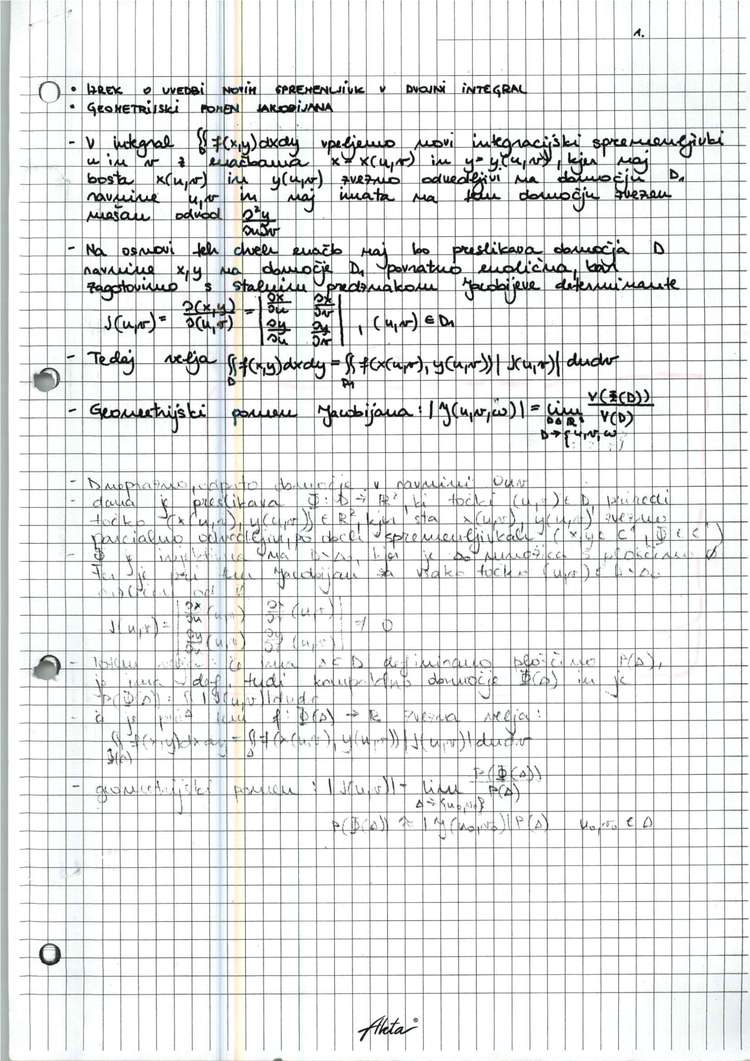 1.
• IZREK O UVEDBI NOVIH SPREMENLJIVK V DVOJNI INTEGRAL
• GEOMETRIJSKI POMEN JAKOBIJANA
- V integral ∬_D f(x,y)dxdy vpeljemo novi integracijski spremenljivki
u in v z enačbama x = x(u,v) in y = y(u,v), kjer naj
bosta x(u,v) in y(u,v) zvezno odvedljivi na območju D₁
ravnine u,v in naj imata na tem območju zvezen
mešan odvod ∂²y/∂u∂v
- Na osnovi teh dveh enačb naj bo preslikava območja D
ravnine x,y na območje D₁ povratno enolična, kar
zagotovimo s stalnim predznakom Jacobijeve determinante
J(u,v) = ∂(x,y)/∂(u,v) = | ∂x/∂u ∂x/∂v ; ∂y/∂u ∂y/∂v | , (u,v) ∈ D₁
- Tedaj velja ∬_D f(x,y)dxdy = ∬_D₁ f(x(u,v), y(u,v)) | J(u,v)| dudv
- Geometrijski pomen Jacobijana: | J(u,v,w) | = lim V(Φ(D)) / V(D)
D → {u,v,w
- D neprazno, odprto območje v ravnini Ouv
- dana je preslikava Φ: D → R², ki točki (u,v) ∈ D priredi
točko (x(u,v), y(u,v)) ∈ R², kjer sta x(u,v), y(u,v) zvezno
parcialno odvedljivi po obeh spremenljivkah (x,y ∈ C¹, Φ ∈ C¹)
- Φ je injektivna na D\ kjer je množica s ploščino 0
je pri tem Jacobijan za vsako točko (u,v) ∈ D\
od 0
J(u,v) = | ∂x/∂u (u,v) ∂x/∂v (u,v) ; ∂y/∂u (u,v) ∂y/∂v (u,v) | ≠ 0
- če ima Δ⊂D definirano ploščino P(Δ),
jo ima def. tudi območje Φ(Δ) in je
P(Φ(Δ)) = ∬ | J(u,v)|dudv
- če je pri tem f: Φ(Δ) → R zvezna velja:
∬_Φ(Δ) f(x,y)dxdy = ∬_Δ f(x(u,v), y(u,v)) | J(u,v)|dudv
- geometrijski pomen : | J(u,v)| = lim_Δ→{u₀,v₀} P(Φ(Δ)) / P(Δ)
P(Φ(Δ)) ≈ | J(u₀,v₀)| P(Δ) u₀,v₀ ∈ Δ
Aketa